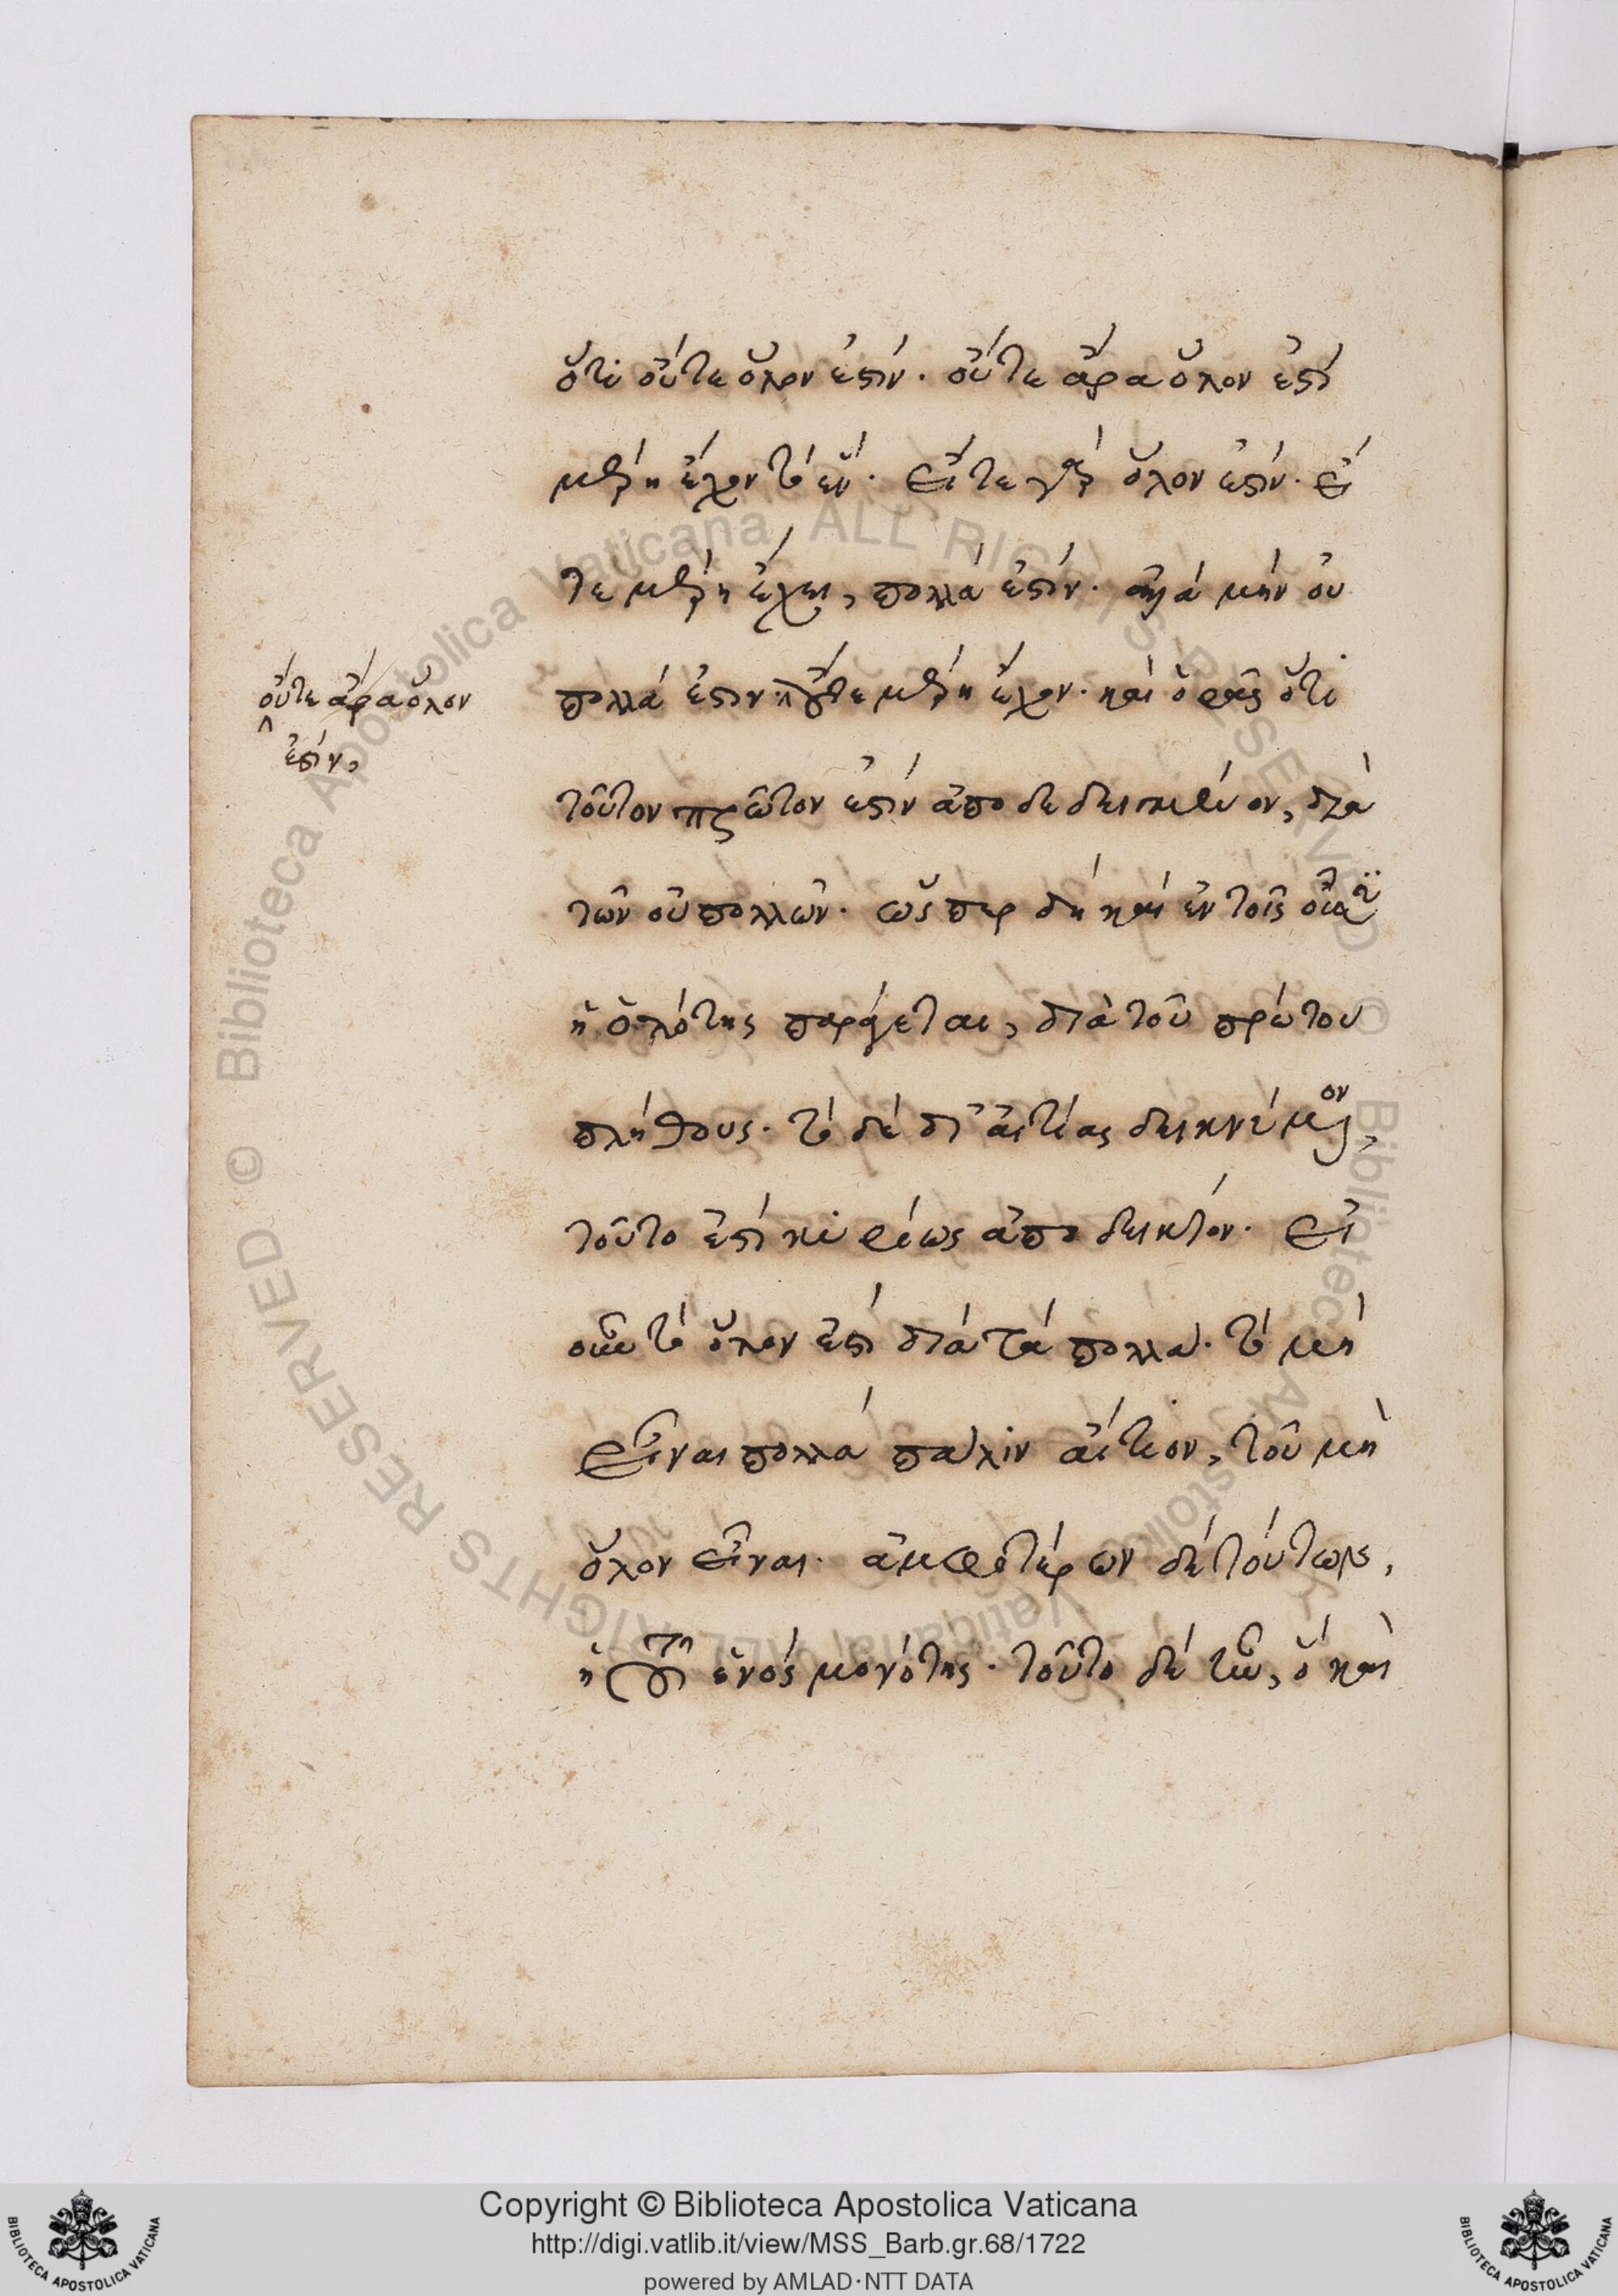 ὅτι οὔτε ὅλον ἐστίν. οὔτε ἄρα ὅλον ἐστί
μέρη ἔχον τὸ ἕν. εἴτε γὰρ ὅλον ἐστίν. εἴ
τε μέρη ἔχει, πολλά ἐστίν. ἀλλὰ μὴν οὐ
πολλά ἐστιν. οὔτε μέρη ἔχον. καὶ ὁρᾷς ὅτι
οὔτε ἄρα ὅλον
ἐστίν,
τοῦτον πρῶτον ἐστὶν ἀποδεδειγμένον, διὰ
τῶν οὐ πολλῶν. ὥσπερ δὴ καὶ ἐν τοῖς
ἡ ὁλότης παράγεται, διὰ τοῦ πρώτου
πλήθους. τὸ δὲ δι' αἰτίας δεικνύμενον,
τοῦτο ἐστὶ κυρίως ἀποδεικτόν. εἰ
οὖν τὸ ὅλον ἐστὶ διὰ τὰ πολλὰ. τὸ μὴ
εἶναι πολλὰ πάλιν αἴτιον, τοῦ μὴ
ὅλον εἶναι. ἀμφοτέρων δὲ τούτων,
ἡ τοῦ ἑνός μονότης. τοῦτο δὲ ἦν, ὃ καὶ
Copyright © Biblioteca Apostolica Vaticana
http://digi.vatlib.it/view/MSS_Barb.gr.68/1722
powered by AMLAD·NTT DATA
BIBLIOTECA APOSTOLICA VATICANA
BIBLIOTECA APOSTOLICA VATICANA
© Biblioteca Apostolica Vaticana ALL RIGHTS RESERVED
© Biblioteca Apostolica Vaticana ALL RIGHTS RESERVED